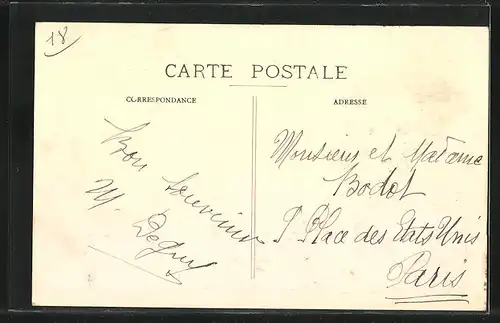 18
CARTE POSTALE
CORRESPONDANCE
ADRESSE
Bon souvenir
M.
Monsieur et Madame
Bodot
Place des Etats Unis
Paris